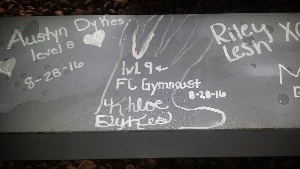 Austyn Dykes
level 8
8-28-16
lvl 9
FL Gymnast
Khloe
Dykes
8-28-16
Riley